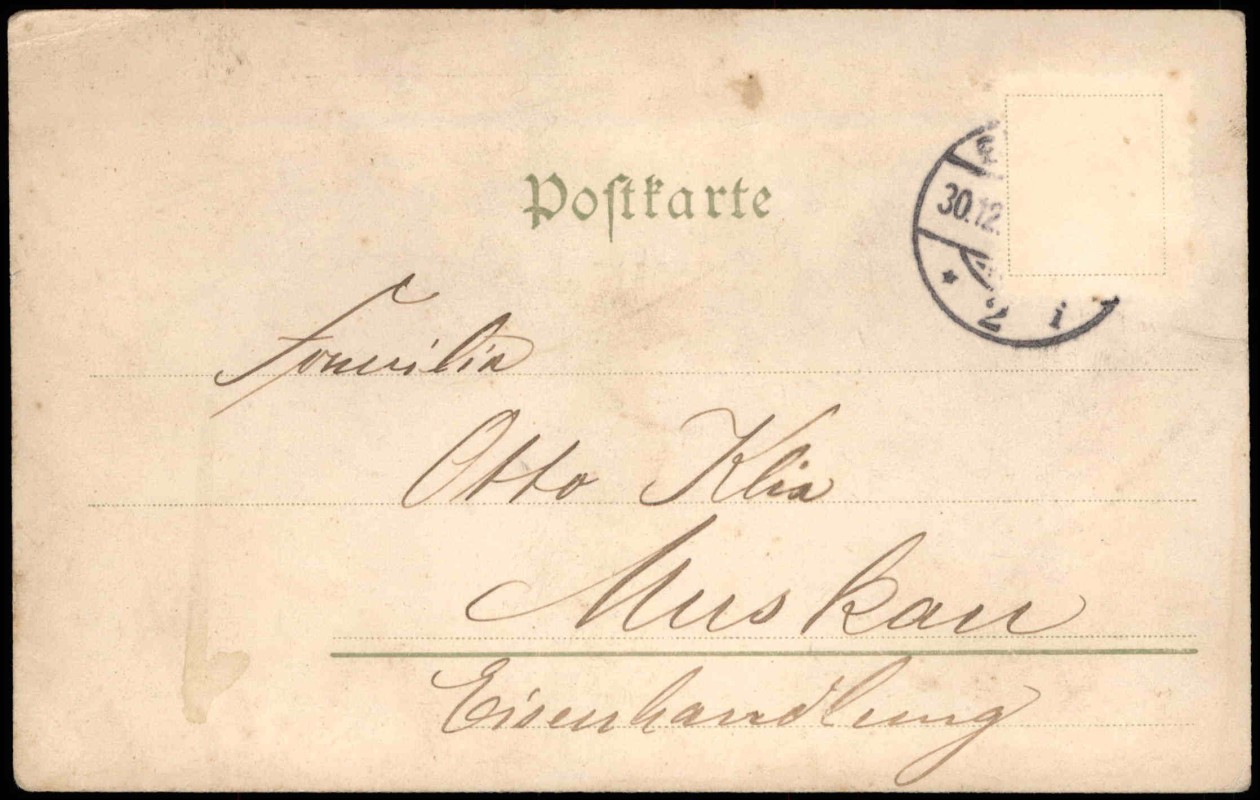 Postkarte
30.12.
2 i
Familie
Otto Klix
Muskau
Eisenhandlung